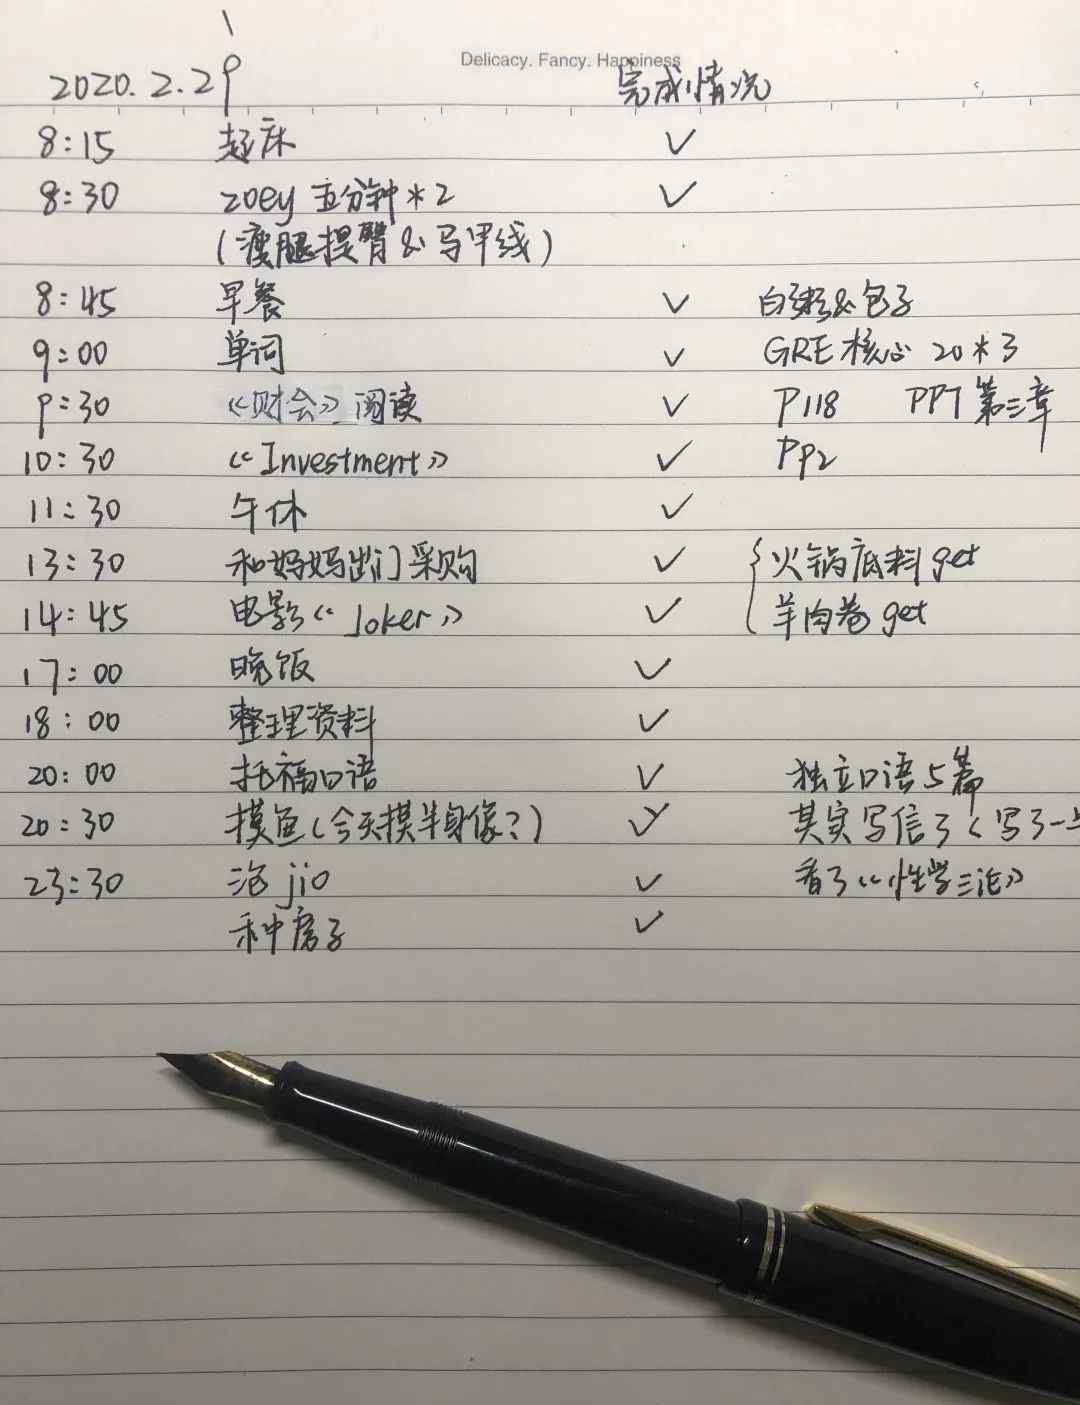 Delicacy. Fancy. Happiness
2020.2.29 完成情况
8:15 起床 ✓
8:30 zoey 五分钟*2 ✓
(瘦腿提臀&马甲线)
8:45 早餐 ✓ 白粥&包子
9:00 单词 ✓ GRE 核心 20*3
9:30 《财会》阅读 ✓ P118 PPT 第三章
10:30 《Investment》 ✓ PP2
11:30 午休 ✓
13:30 和妈妈出门采购 ✓ 火锅底料 get
14:45 电影《Joker》 ✓ 羊肉卷 get
17:00 晚饭 ✓
18:00 整理资料 ✓
20:00 托福口语 ✓ 独立口语5篇
20:30 摸鱼(今天摸半身像?) ✓ 其实写信了(写了一
23:30 泡jio ✓ 看了《性学三论》
种房子 ✓